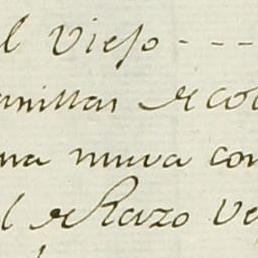 l Viejo - - -
anillas de co
una nueva con
l de Razo Ve